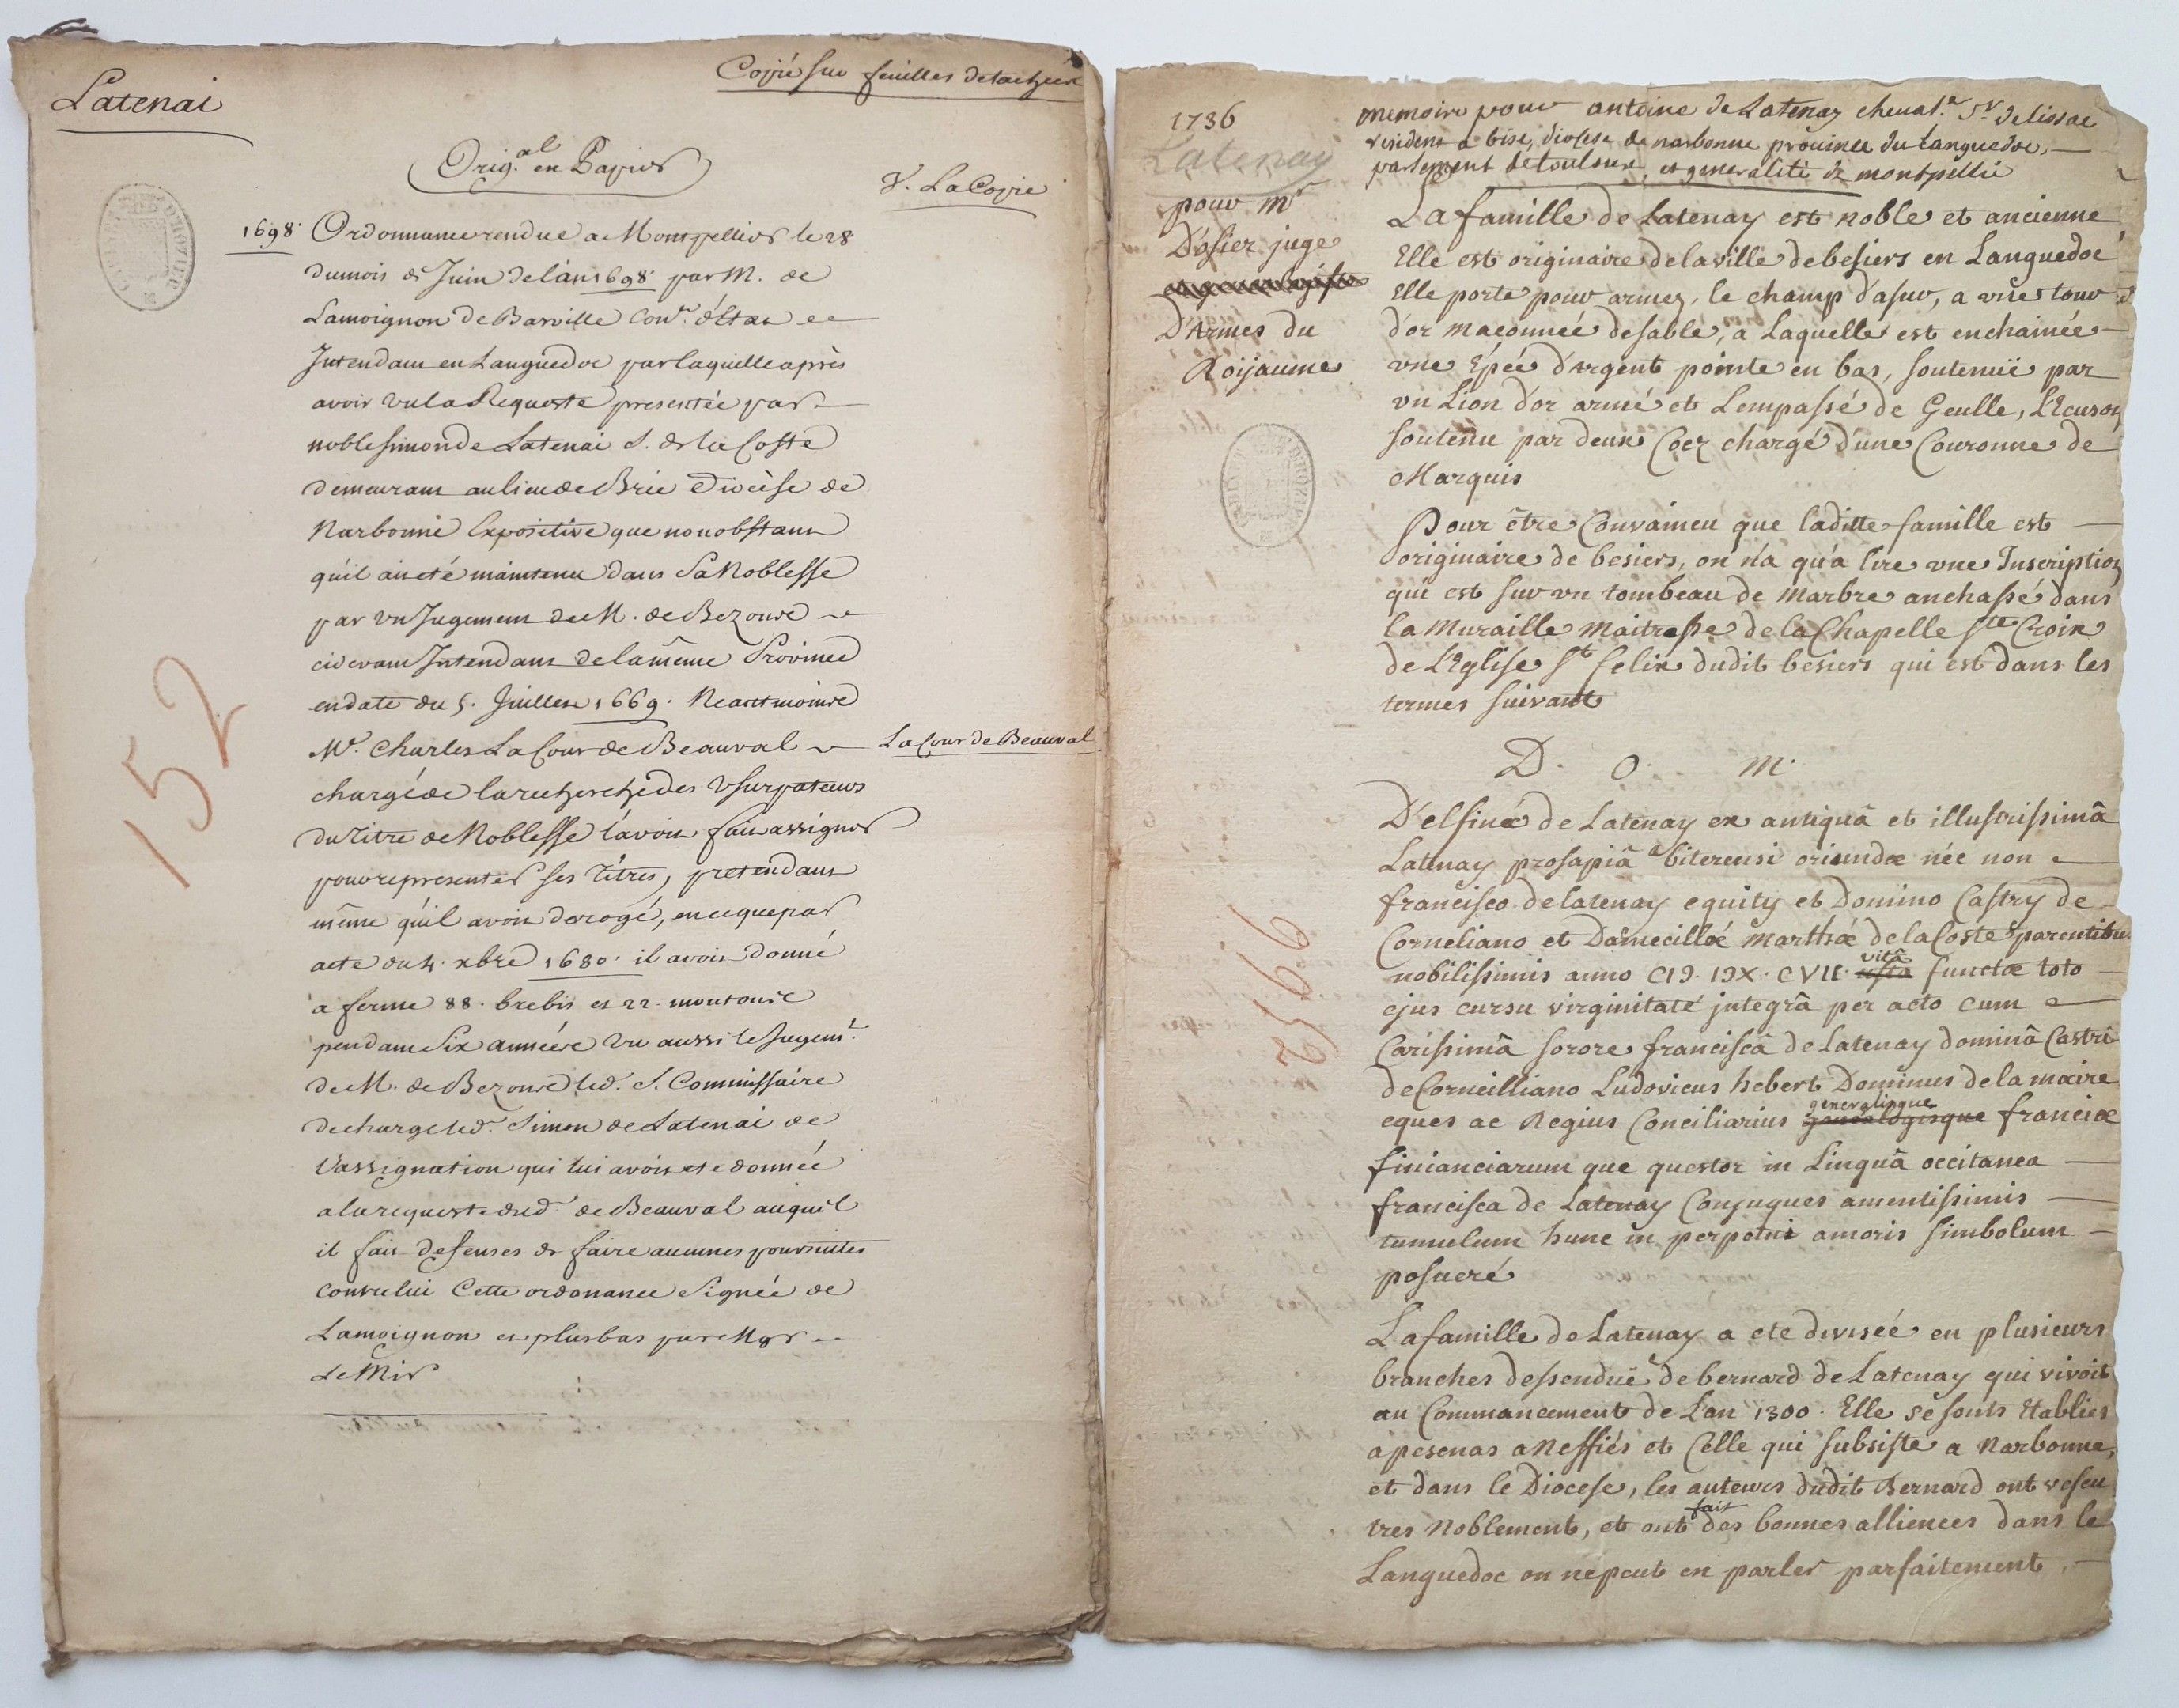 Latenai
Copié sur feuilles detachées
Orig.al en Papier
V. La Copie
1698 Ordonnance rendue a Montpellier le 28
du mois de Juin de l'an 1698 par M. de
Lamoignon de Basville Con.er d'Etat et
Intendant en Languedoc par laquelle après
avoir vu la Requeste presentée par
noble simon de Latenai S. de la Coste
demeurant au lieu de Brie Diocèse de
Narbonne Expositive que nonobstant
qu'il ait eté maintenu dans Sa Noblesse
par un Jugement de M. de Bezons
cidevant Intendant de la même Province
en date du 5. Juillet 1669. Neantmoins
Mr. Charles La Cour de Beauval
La Cour de Beauval
chargé de la recherche des Usurpateurs
du titre de Noblesse l'avoit fait assigner
pour representer ses titres, pretendant
même qu'il avoit derogé, en ce que par
acte du 4. xbre 1680. il avoit donné
a ferme 88. brebis et 22. moutons
pendant Six années Vu aussi le Jugem.t
de M. de Bezons led. S. Commissaire
decharge led. Simon de Latenai de
l'assignation qui lui avoit ete donnée
a la requeste dud. de Beauval auquel
il fait defenses de faire aucunes poursuites
contre lui Cette ordonance Signée de
Lamoignon et plus bas par Mgr
Le Mir
152
1736
Latenay
pour Mr
D'osier juge
D'Armes du
Roijaume
3566
memoire pour antoine de Latenay cheual.r Sr de lissac
resident a bise, diocese de narbonne prouince du Languedoc,
parlement de toulouse, et generalité de montpellié
La famille de Latenay est noble et ancienne
Elle est originaire de la ville de besiers en Languedoc
Elle porte pour armes, le champ d'asur, a vne tour
d'or maçonneé de sable, a Laquelle est enchainée
vne Epée d'argent pointe en bas, soutenüe par
vn Lion d'or armé et Lempassé de Geulle, L'Ecuson
soutenu par deux Coez chargé d'une Couronne de
Marquis
Pour être Convaincu que laditte famille est
originaire de besiers, on n'a qu'a lire vne Inscription
qui est sur vn tombeau de Marbre anchassé dans
la Muraille Maitresse de la Chapelle Ste Croix
de L'Eglise St felix dudit besiers qui est dans les
termes suivant
D. O. M.
D'elfinæ de Latenay ex antiquâ et illustrissimâ
Latenay prosapiâ biterensi oriundæ néc non
francisco de latenay equity et Domino Castry de
Corneliano et Damecillæ Marthæ de la Coste parentibu
nobilissimis anno CIƆ. IƆX. CVII. vitâ functæ toto
ejus cursu virginitate jntegrâ per acto cum
Carissimâ sorore franciscâ de Latenay dominâ Castri
de Corneilliano Ludovicus hebert Dominus de la maire
eques ac Regius Conciliarius generalisque franciæ
finianciarum que questor in Linguâ occitanea
francisca de Latenay Conjugues amentissimis
tumulum hunc in perpetui amoris simbolum
posueré
La famille de Latenay a ete devisée en plusieurs
branches dessenduë de bernard de Latenay qui vivoit
au Commancement de Lan 1300. Elle se sonts Etablies
a pesenas a Neffiés et Celle qui subsiste a Narbonne,
et dans le Diocese, les auteurs dudit Bernard ont vescu
tres Noblement, et ont fait des bonnes alliences dans le
Languedoc on ne peut en parler parfaitement